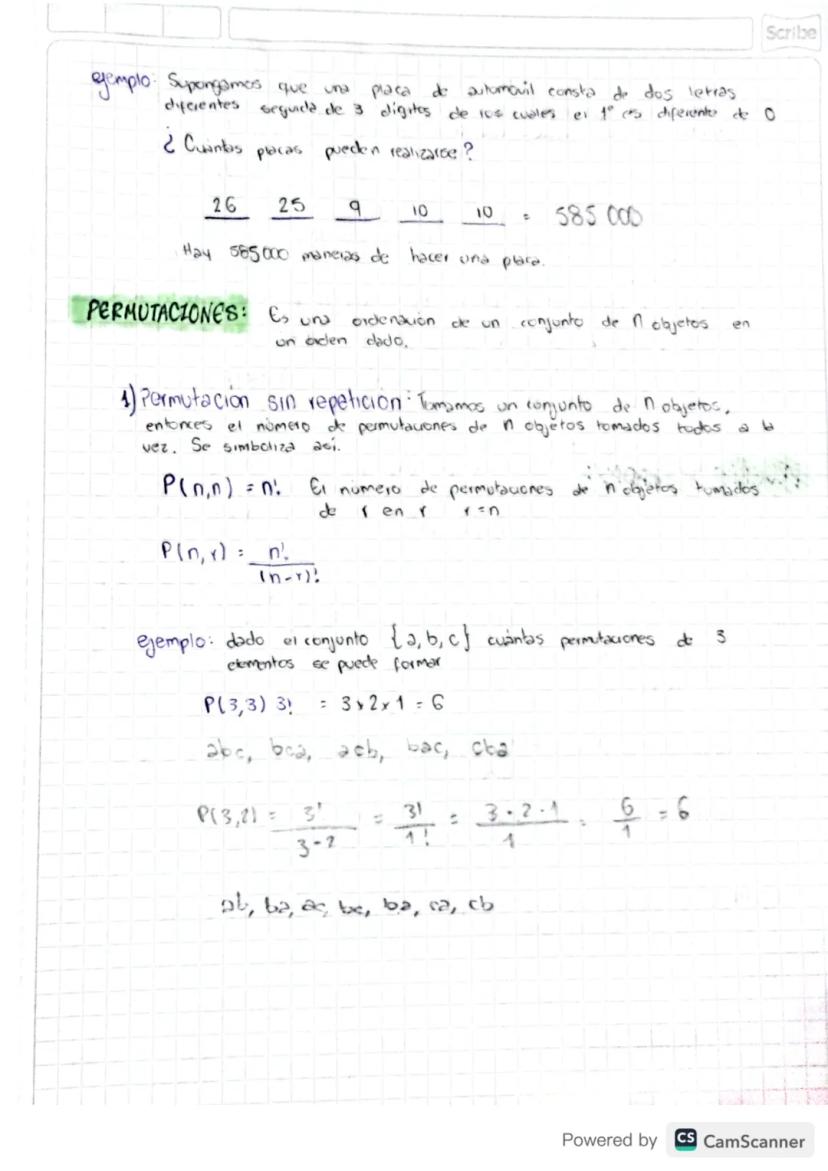 Scribe
ejemplo: Supongamos que una placa de automóvil consta de dos letras
diferentes seguida de 3 dígitos de los cuales el 1° es diferente de 0
¿Cuántas placas pueden realizarse?
26 25 9 10 10 = 585 000
Hay 585000 maneras de hacer una placa.
PERMUTACIONES: Es una ordenación de un conjunto de n objetos en
un orden dado.
1) Permutación sin repetición: Tomamos un conjunto de n objetos,
entonces el número de permutaciones de n objetos tomados todos a la
vez. Se simboliza así.
P(n,n) = n! El número de permutaciones de n objetos tumados
de r en r r=n
P(n,r) = n!
(n-r)!
ejemplo: dado el conjunto {a,b,c} cuántas permutaciones de 3
elementos se puede formar
P(3,3) 3! = 3x2x1 = 6
abc, bca, acb, bac, cba
P(3,2) = 3! = 3! = 3·2·1 = 6 = 6
3-2 1! 1 1
ab, ba, ac, bc, ba, ca, cb
Powered by CS CamScanner